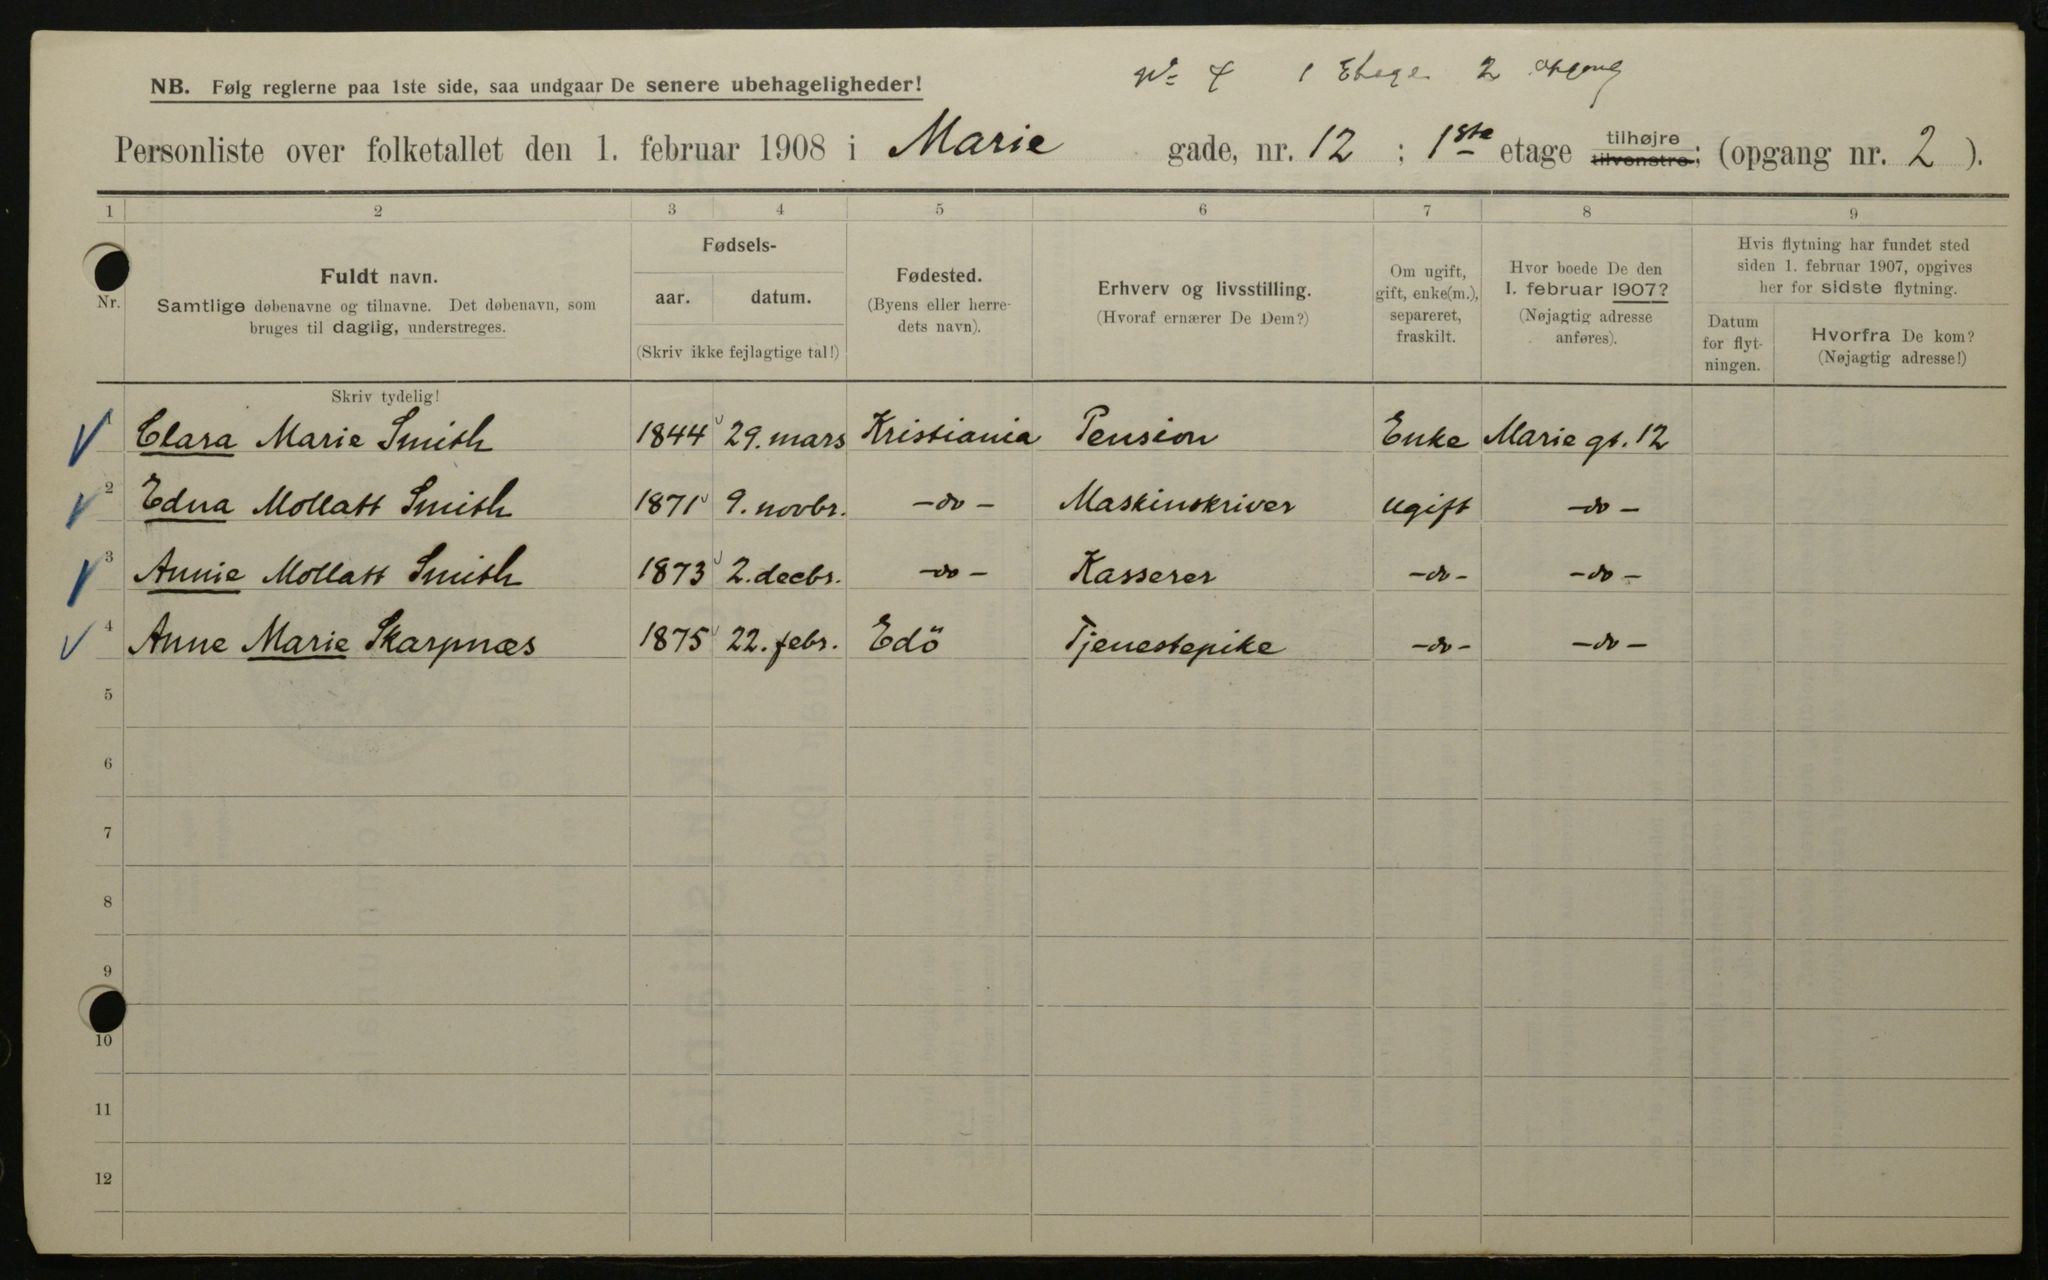 No 4 1 Etage 2 opgang
NB. Følg reglerne paa 1ste side, saa undgaar De senere ubehageligheder!
Personliste over folketallet den 1. februar 1908 i Marie gade, nr. 12 ; 1ste etage tilhøjre tilvenstre; (opgang nr. 2 ).
1 2 3 4 5 6 7 8 9
Nr.
Fuldt navn.
Samtlige døbenavne og tilnavne. Det døbenavn, som
bruges til daglig, understreges.
Fødsels-
aar. datum.
(Skriv ikke fejlagtige tal!)
Fødested.
(Byens eller herre-
dets navn).
Erhverv og livsstilling.
(Hvoraf ernærer De Dem?)
Om ugift,
gift, enke(m.),
separeret,
fraskilt.
Hvor boede De den
1. februar 1907?
(Nøjagtig adresse
anføres).
Hvis flytning har fundet sted
siden 1. februar 1907, opgives
her for sidste flytning.
Datum
for flyt-
ningen.
Hvorfra De kom?
(Nøjagtig adresse!)
Skriv tydelig!
Clara Marie Smith 1844 29. mars Kristiania Pension Enke Marie gt. 12
2 Edna Mollatt Smith 1871 9. novbr. -do- Maskinskriver ugift -do-
3 Annie Mollatt Smith 1873 2. decbr. -do- Kasserer -do- -do-
4 Anne Marie Skarpnæs 1875 22. febr. Edö Tjenestepike -do- -do-
5
6
7
8
9
10
11
12